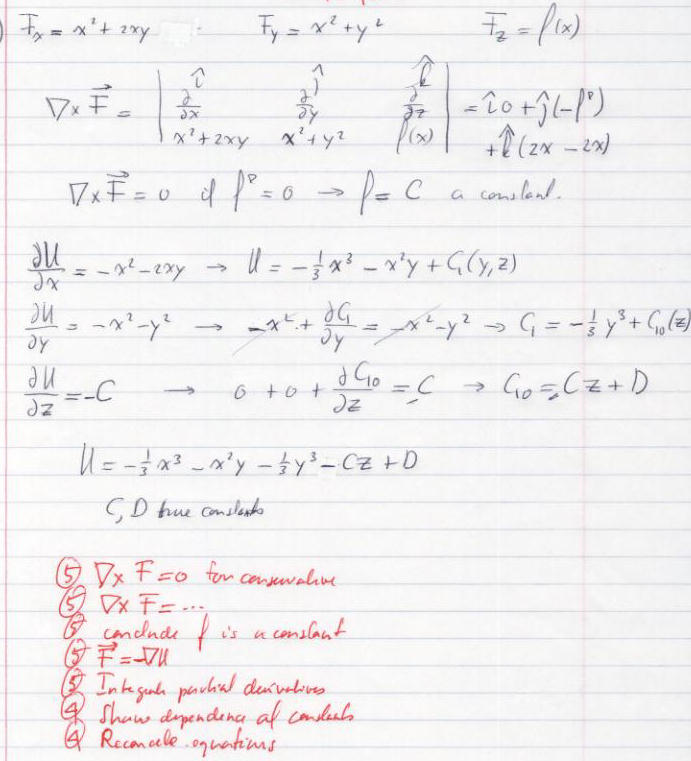 ) Fx = x² + 2xy    Fy = x² + y²    Fz = f(x)
∇ × F⃗ = | î ĵ k̂ | = î 0 + ĵ(-f')
| ∂/∂x ∂/∂y ∂/∂z |
| x² + 2xy x² + y² f(x) | + k̂(2x - 2x)
∇ × F⃗ = 0 if f' = 0 → f = C a constant.
∂U/∂x = -x² - 2xy → U = -⅓x³ - x²y + C₁(y,z)
∂U/∂y = -x² - y² → -x² + ∂C₁/∂y = -x² - y² → C₁ = -⅓y³ + C₁₀(z)
∂U/∂z = -C → 0 + 0 + ∂C₁₀/∂z = -C → C₁₀ = -Cz + D
U = -⅓x³ - x²y - ⅓y³ - Cz + D
C, D true constants
⑤ ∇ × F = 0 for conservative
⑤ ∇ × F = ...
⑤ conclude f is a constant
⑤ F⃗ = -∇U
⑤ Integrate partial derivatives
④ Show dependence of constants
④ Reconcile equations